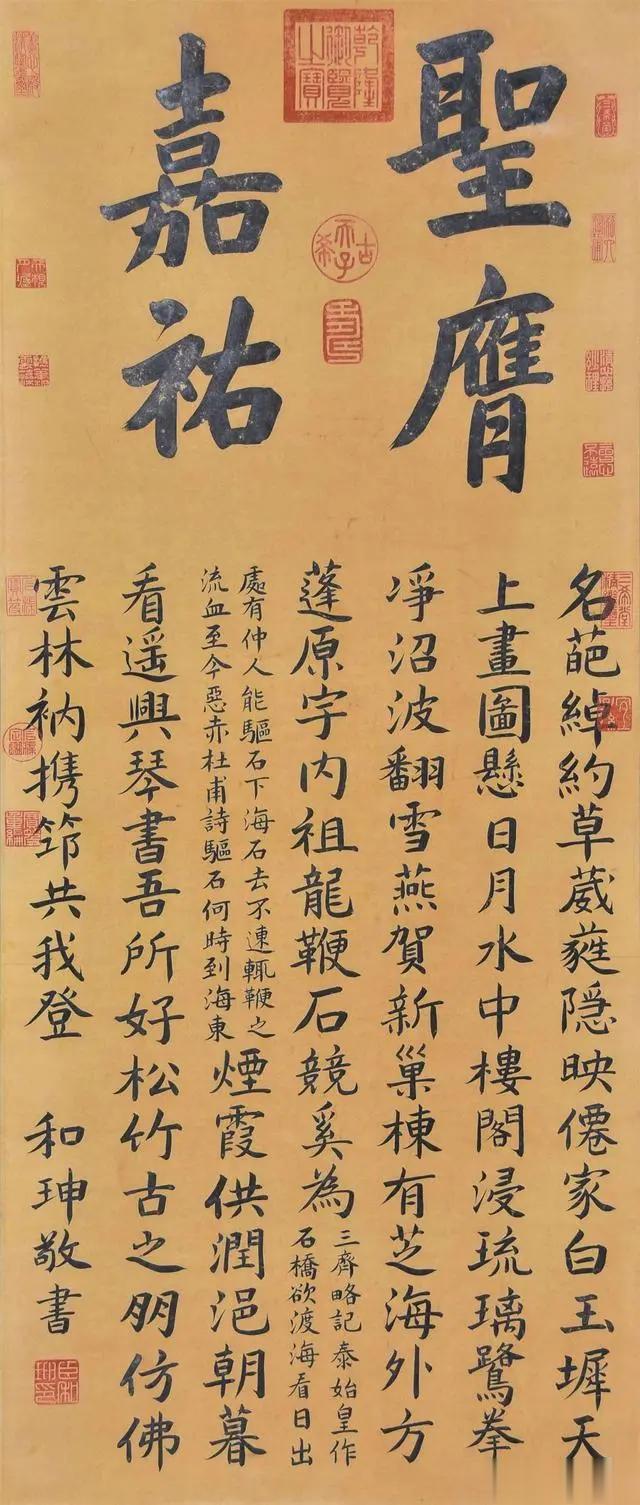 聖膺
嘉祐
乾隆御覽之寶
古希天子
名葩綽約草葳蕤隱映僊家白玉墀天
上畫圖懸日月水中樓閣浸琉璃鷺拳
凈沼波翻雪燕賀新巢棟有芝海外方
蓬原宇內祖龍鞭石競奚為
三齊略記泰始皇作
石橋欲渡海看日出
處有仲人能驅石下海石去不速輒鞭之
流血至今惡赤杜甫詩驅石何時到海東
煙霞供潤浥朝暮
看遥興琴書吾所好松竹古之朋仿佛
雲林衲携筇共我登
和珅敬書